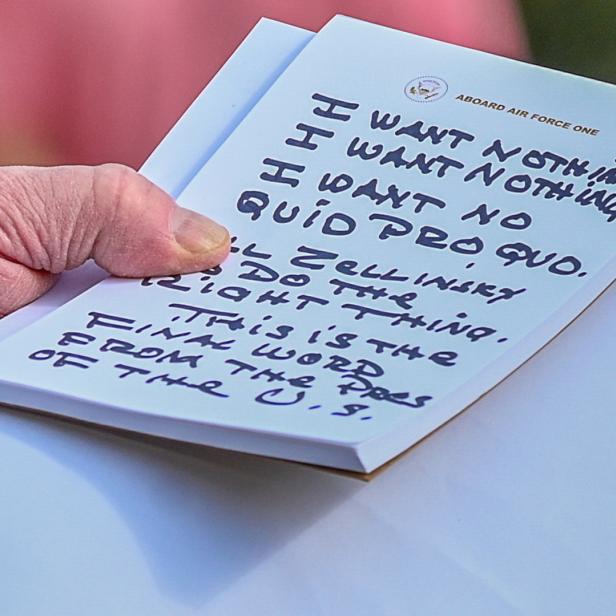 ABOARD AIR FORCE ONE
I WANT NOTHIN
I WANT NOTHING
I WANT NO
QUID PRO QUO.
LL ZELLINSKY
DO THE
RIGHT THING.
.THIS IS THE
FINAL WORD
FROM THE PRES
OF THE U.S.